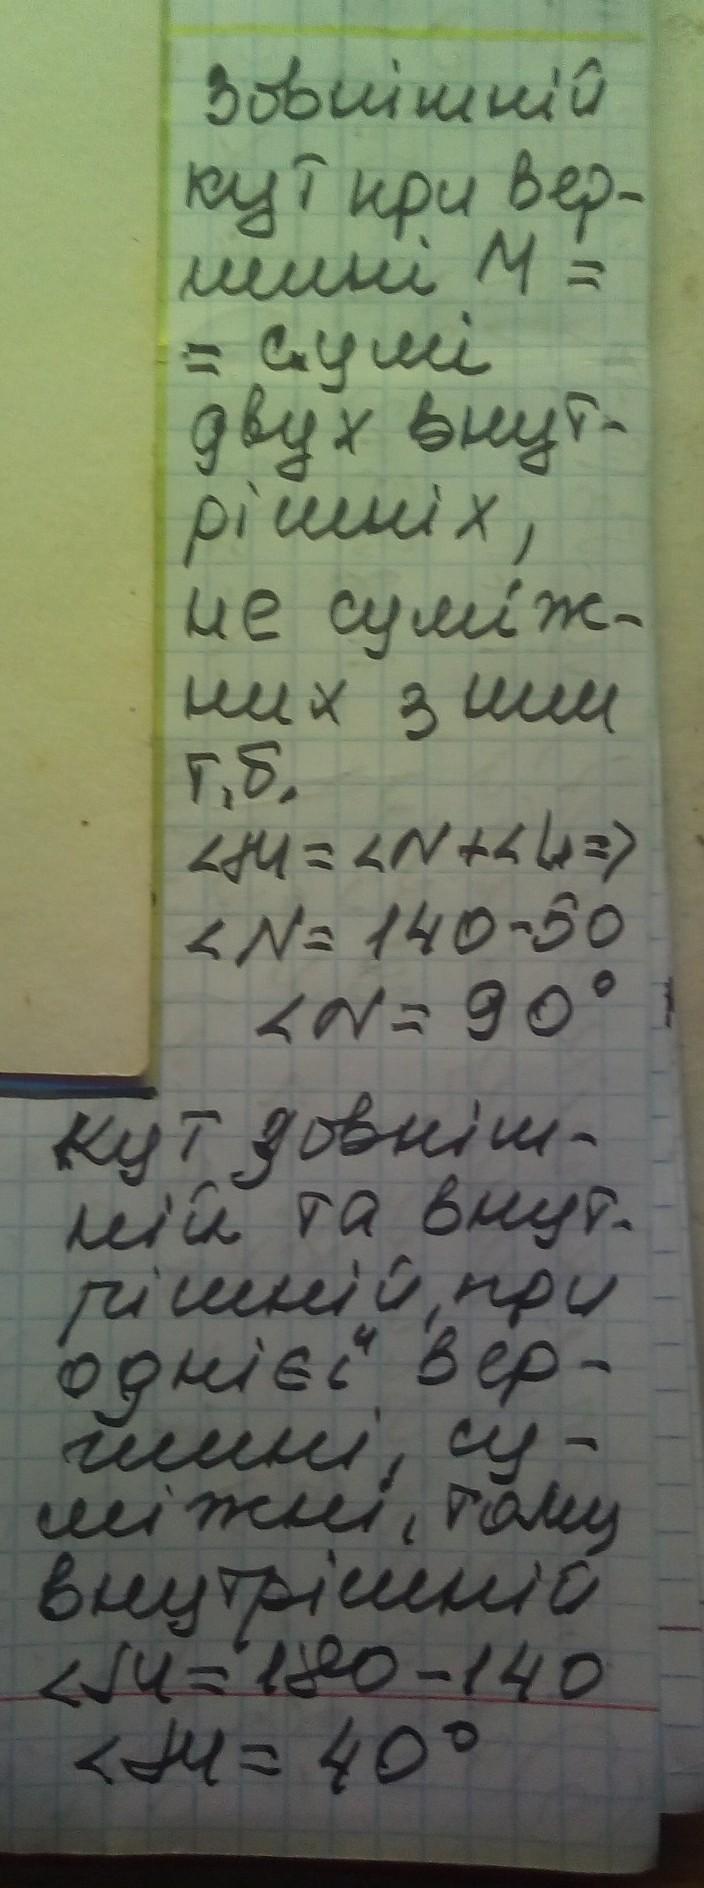 Зовнішній
кут при вер-
шині М =
= сумі
двух внут-
рішніх,
не суміж-
них з ним
т.б.
<М = <N + <К =>
<N = 140-50
<N = 90°
Кут зовніш-
ній та внут-
рішній, при
однієї вер-
шині, су-
міжні, тому
внутрішній
<М = 180 - 140
<М = 40°